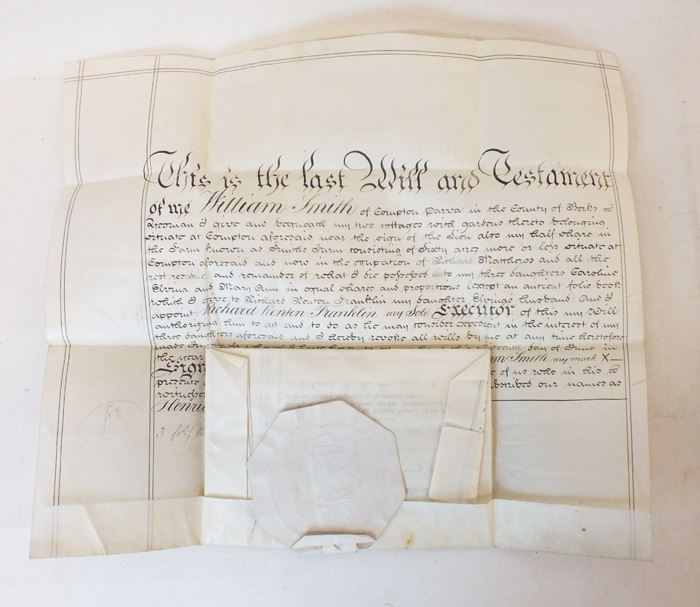 This is the last Will and Testament
of me William Smith of Compton Parva in the County of Berks
Yeoman I give and bequeath my two cottages with gardens thereto belonging
situate at Compton aforesaid near the sign of the Lion also my half share in
the Farm known as Smiths Farm consisting of Sixty acres more or less situate at
Compton aforesaid and now in the occupation of Richard Matthews and all the
rest residue and remainder of what I die possessed unto my three daughters Caroline
Elvina and Mary Ann in equal shares and proportions except an antient folio book
which I give to Richard Kenton Franklin my daughter Elvinas husband And I
appoint Richard Kenton Franklin my Sole Executor of this my Will
authorising him to act and to do as he may consider expedient in the interest of my
three daughters aforesaid and I hereby revoke all wills by me at any time heretofore
made day of June in
the year Smith my mark X
Sign of us who in this
presence subscribed our names as
witnesses
Henri